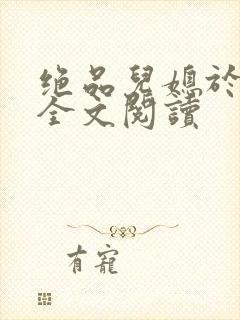 绝品兒媳於
全文閱讀
有寵